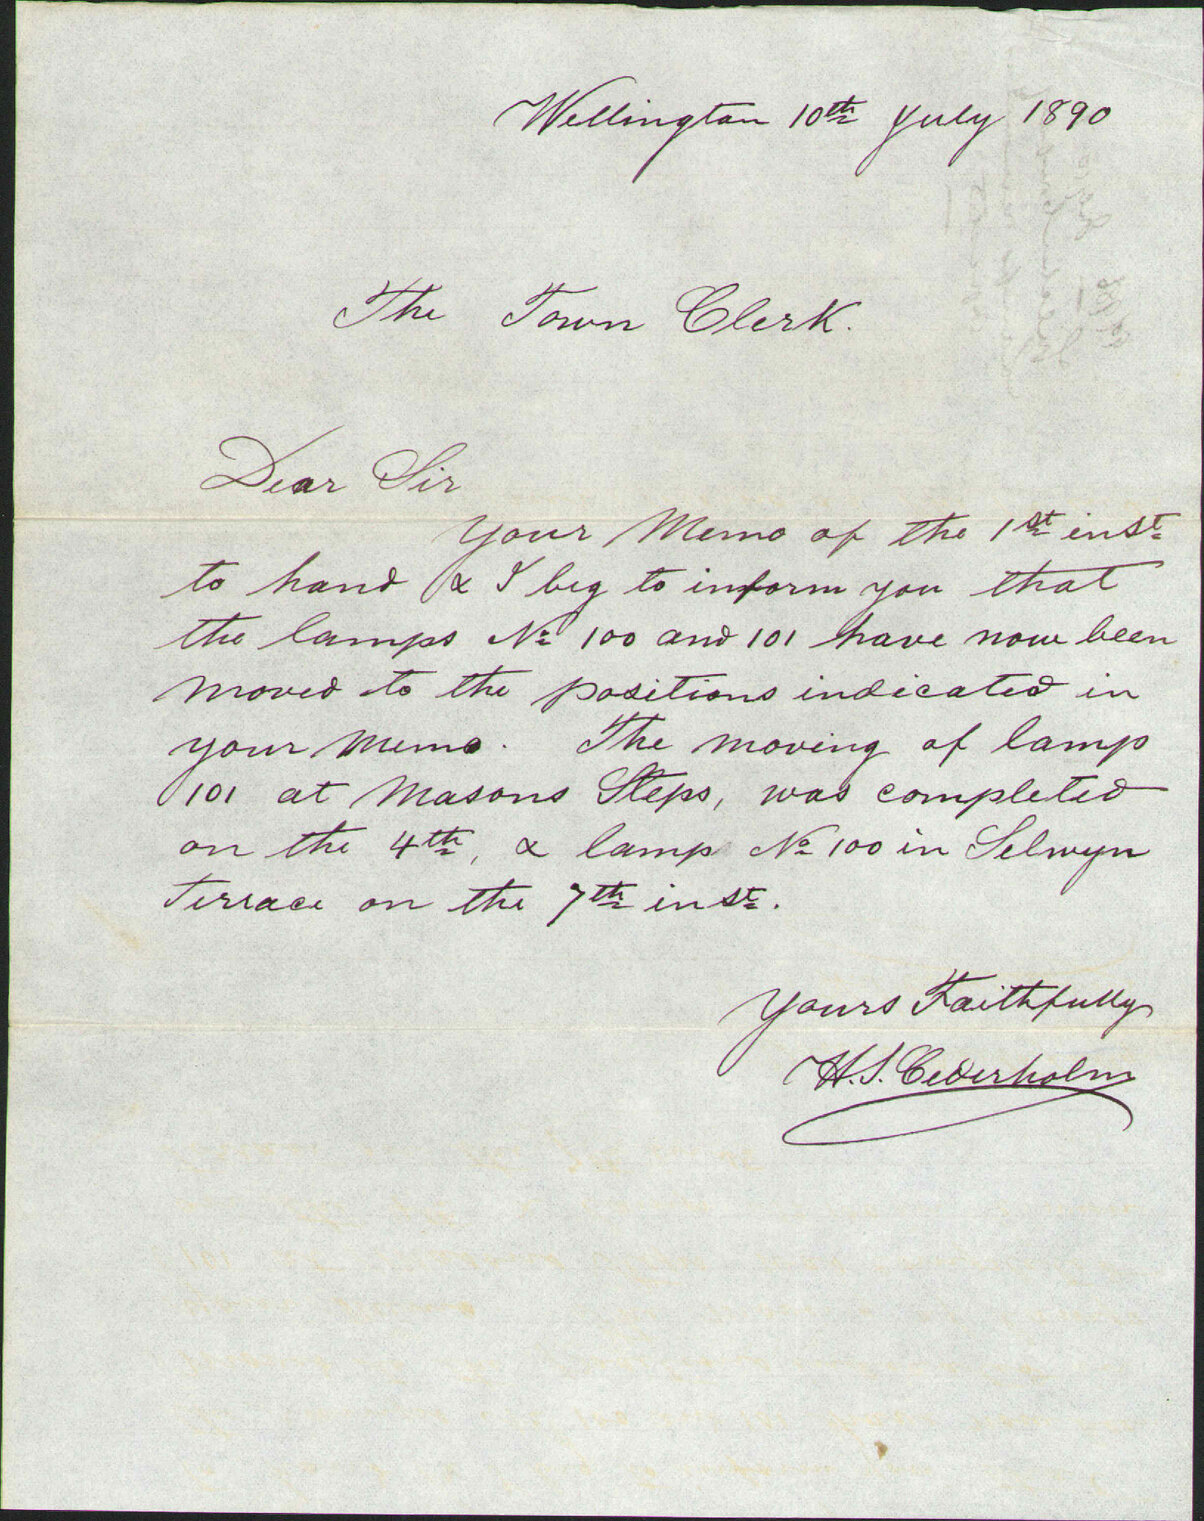 Wellington 10th July 1890
The Town Clerk.
Dear Sir
Your Memo of the 1st inst
to hand & I beg to inform you that
the lamps No 100 and 101 have now been
moved to the positions indicated in
your memo. The moving of lamp
101 at Masons Steps, was completed
on the 4th, & lamp No 100 in Selwyn
Terrace on the 7th inst.
Yours Faithfully
H.S. Cederholm